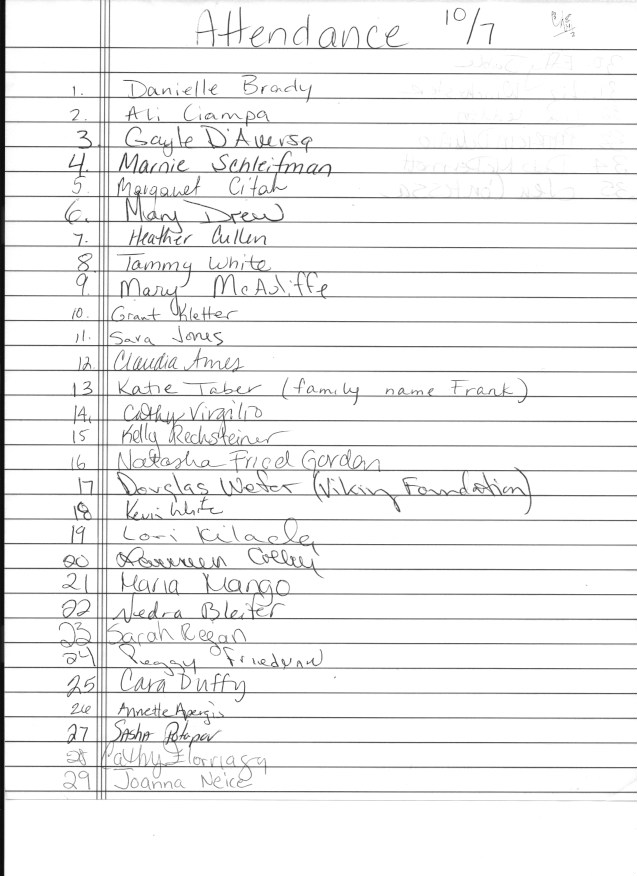 Attendance 10/7
1. Danielle Brady
2. Ali Ciampa
3. Gayle D'Aversa
4. Marnie Schleifman
5. Margaret Citak
6. Mary Drew
7. Heather Cullen
8. Tammy White
9. Mary McAuliffe
10. Grant Kletter
11. Sara Jones
12. Claudia Ames
13 Katie Taber (family name Frank)
14. Cathy Virgilio
15 Kelly Rechsteiner
16 Natasha Fried Gordon
17 Douglas (Viking Foundation)
18 Kevin White
19 Lori
20
21 Maria Mango
22 Nedra Bleifer
23 Sarah Regan
24 Peggy
25 Cara Duffy
26 Annette Apergis
27 Sasha Potapov
28 Cathy
29 Joanna Neice